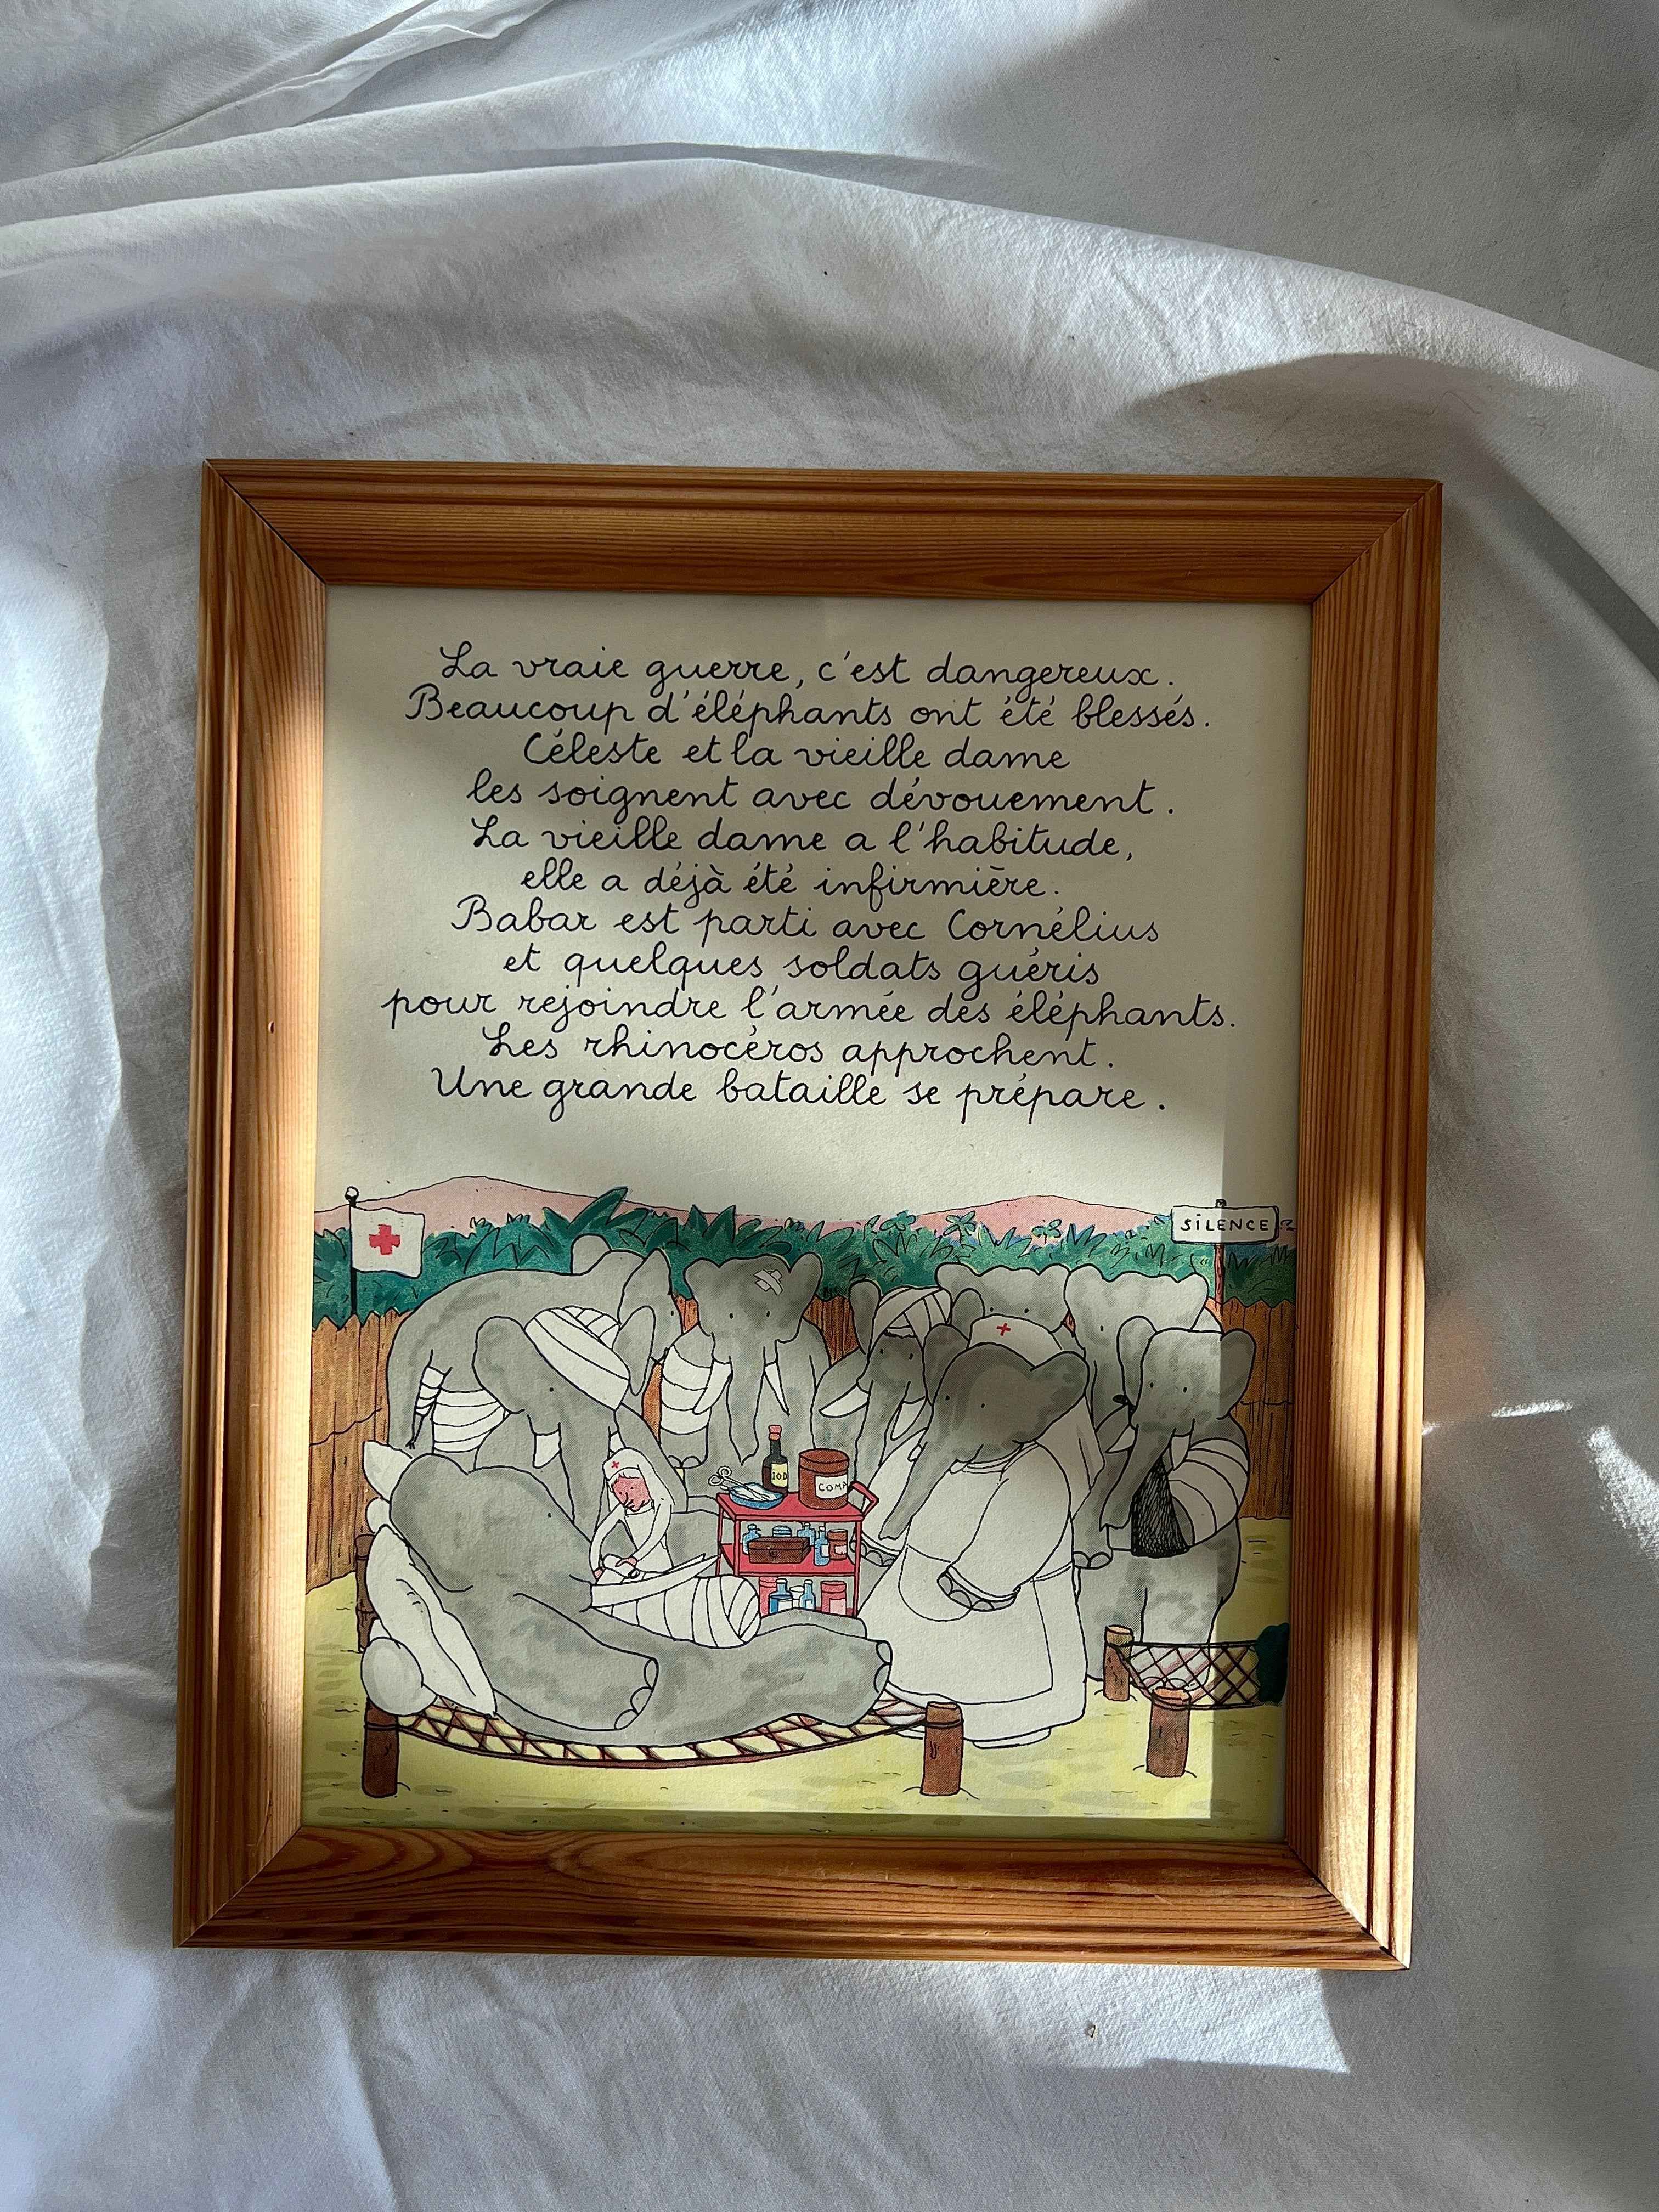 La vraie guerre, c'est dangereux.
Beaucoup d'éléphants ont été blessés.
Céleste et la vieille dame
les soignent avec dévouement.
La vieille dame a l'habitude,
elle a déjà été infirmière.
Babar est parti avec Cornélius
et quelques soldats guéris
pour rejoindre l'armée des éléphants.
Les rhinocéros approchent.
Une grande bataille se prépare.
SILENCE
IOD
COMP